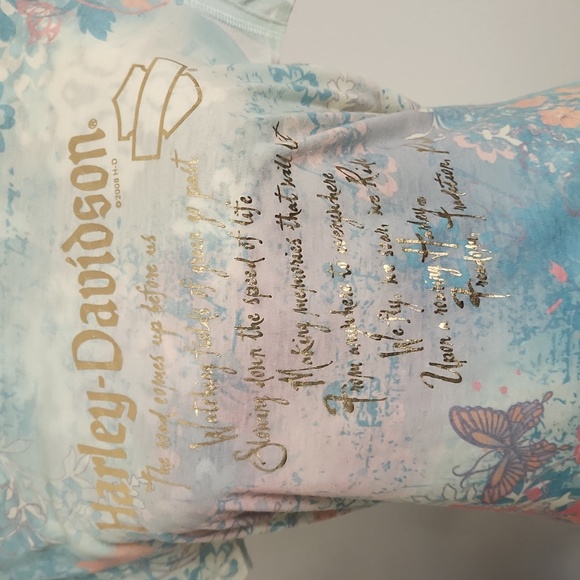 Harley-Davidson®
©2008 H-D
The road comes up before us
Watching fields of green go past
Slowing down the speed of life
Making memories that will
From anywhere to everywhere
We fly, we soar, we Ride
Upon a roaring Harley
Freedom